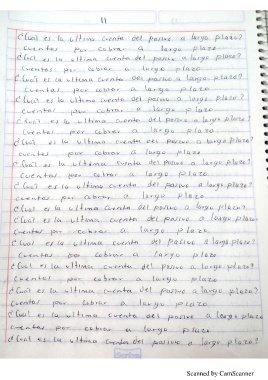 11
¿Cuál es la ultima cuenta del pasivo a largo plazo?
cuentas por cobrar a largo plazo
¿Cuál es la ultima cuenta del pasivo a largo plazo?
cuentas por cobrar a largo plazo
¿Cuál es la ultima cuenta del pasivo a largo plazo?
cuentas por cobrar a largo plazo
¿Cuál es la ultima cuenta del pasivo a largo plazo?
cuentas por cobrar a largo plazo
¿Cuál es la ultima cuenta del pasivo a largo plazo?
cuentas por cobrar a largo plazo
¿Cuál es la ultima cuenta del pasivo a largo plazo?
cuentas por cobrar a largo plazo
¿Cuál es la ultima cuenta del pasivo a largo plazo?
cuentas por cobrar a largo plazo
¿Cuál es la ultima cuenta del pasivo a largo plazo?
cuentas por cobrar a largo plazo
¿Cuál es la ultima cuenta del pasivo a largo plazo?
cuentas por cobrar a largo plazo
¿Cuál es la ultima cuenta del pasivo a largo plazo?
cuentas por cobrar a largo plazo
¿Cuál es la ultima cuenta del pasivo a largo plazo?
cuentas por cobrar a largo plazo
¿Cuál es la ultima cuenta del pasivo a largo plazo?
cuentas por cobrar a largo plazo
¿Cuál es la ultima cuenta del pasivo a largo plazo?
cuentas por cobrar a largo plazo
¿Cuál es la ultima cuenta del pasivo a largo plazo?
Scanned by CamScanner